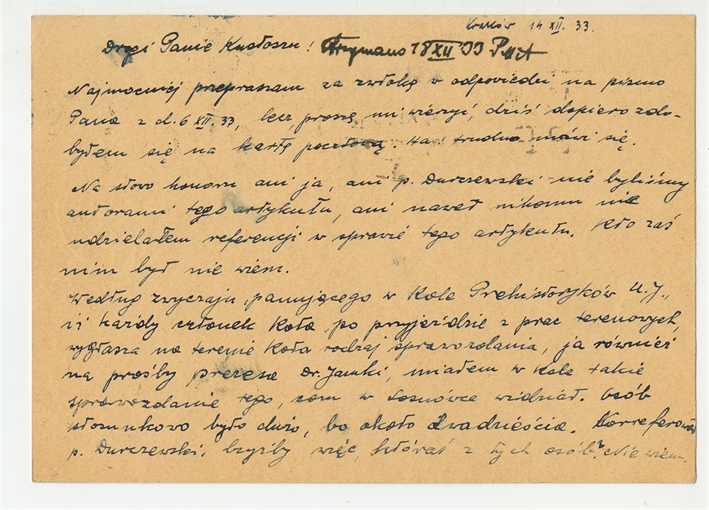 Kraków 14 XII. 33.
Drogi Panie Kustoszu! Otrzymano 18 XII 33
Najmocniej przepraszam za zwłokę w odpowiedzi na pismo
Pana z d. 6 XII. 33, lecz, proszę mi wierzyć, dziś dopiero zdo-
byłem się na kartę pocztową. Ha! trudno mówi się.
Na słowo honoru ani ja, ani p. Durczewski nie byliśmy
autorami tego artykułu, ani nawet nikomu nie
udzielałem referencji w sprawie tego artykułu. Kto zaś
nim był nie wiem.
Według zwyczaju, panującego w Kole Prehistoryków U. J.,
iż każdy członek Koła, po przyjeździe z prac terenowych,
wygłasza na terenie Koła rodzaj sprawozdania, ja również
na prośby prezesa Dr. Jamki, miałem w Kole takie
sprawozdanie tego, com w widział. Osób
stosunkowo było dużo, bo około dwadzieścia. Korreferował
p. Durczewski, byłby więc, któraś z tych osób? Nie wiem.